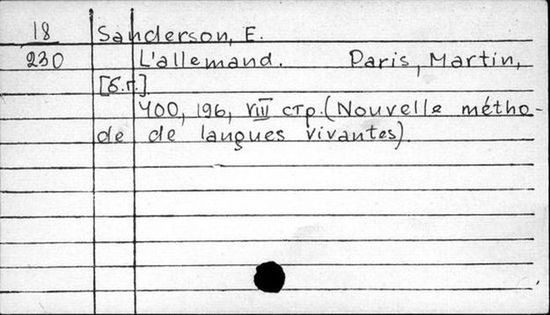 18 Sanderson, E.
230 L'allemand. Paris, Martin,
[б.г.]
400, 196, VIII стр. (Nouvelle métho-
de de langues vivantes).